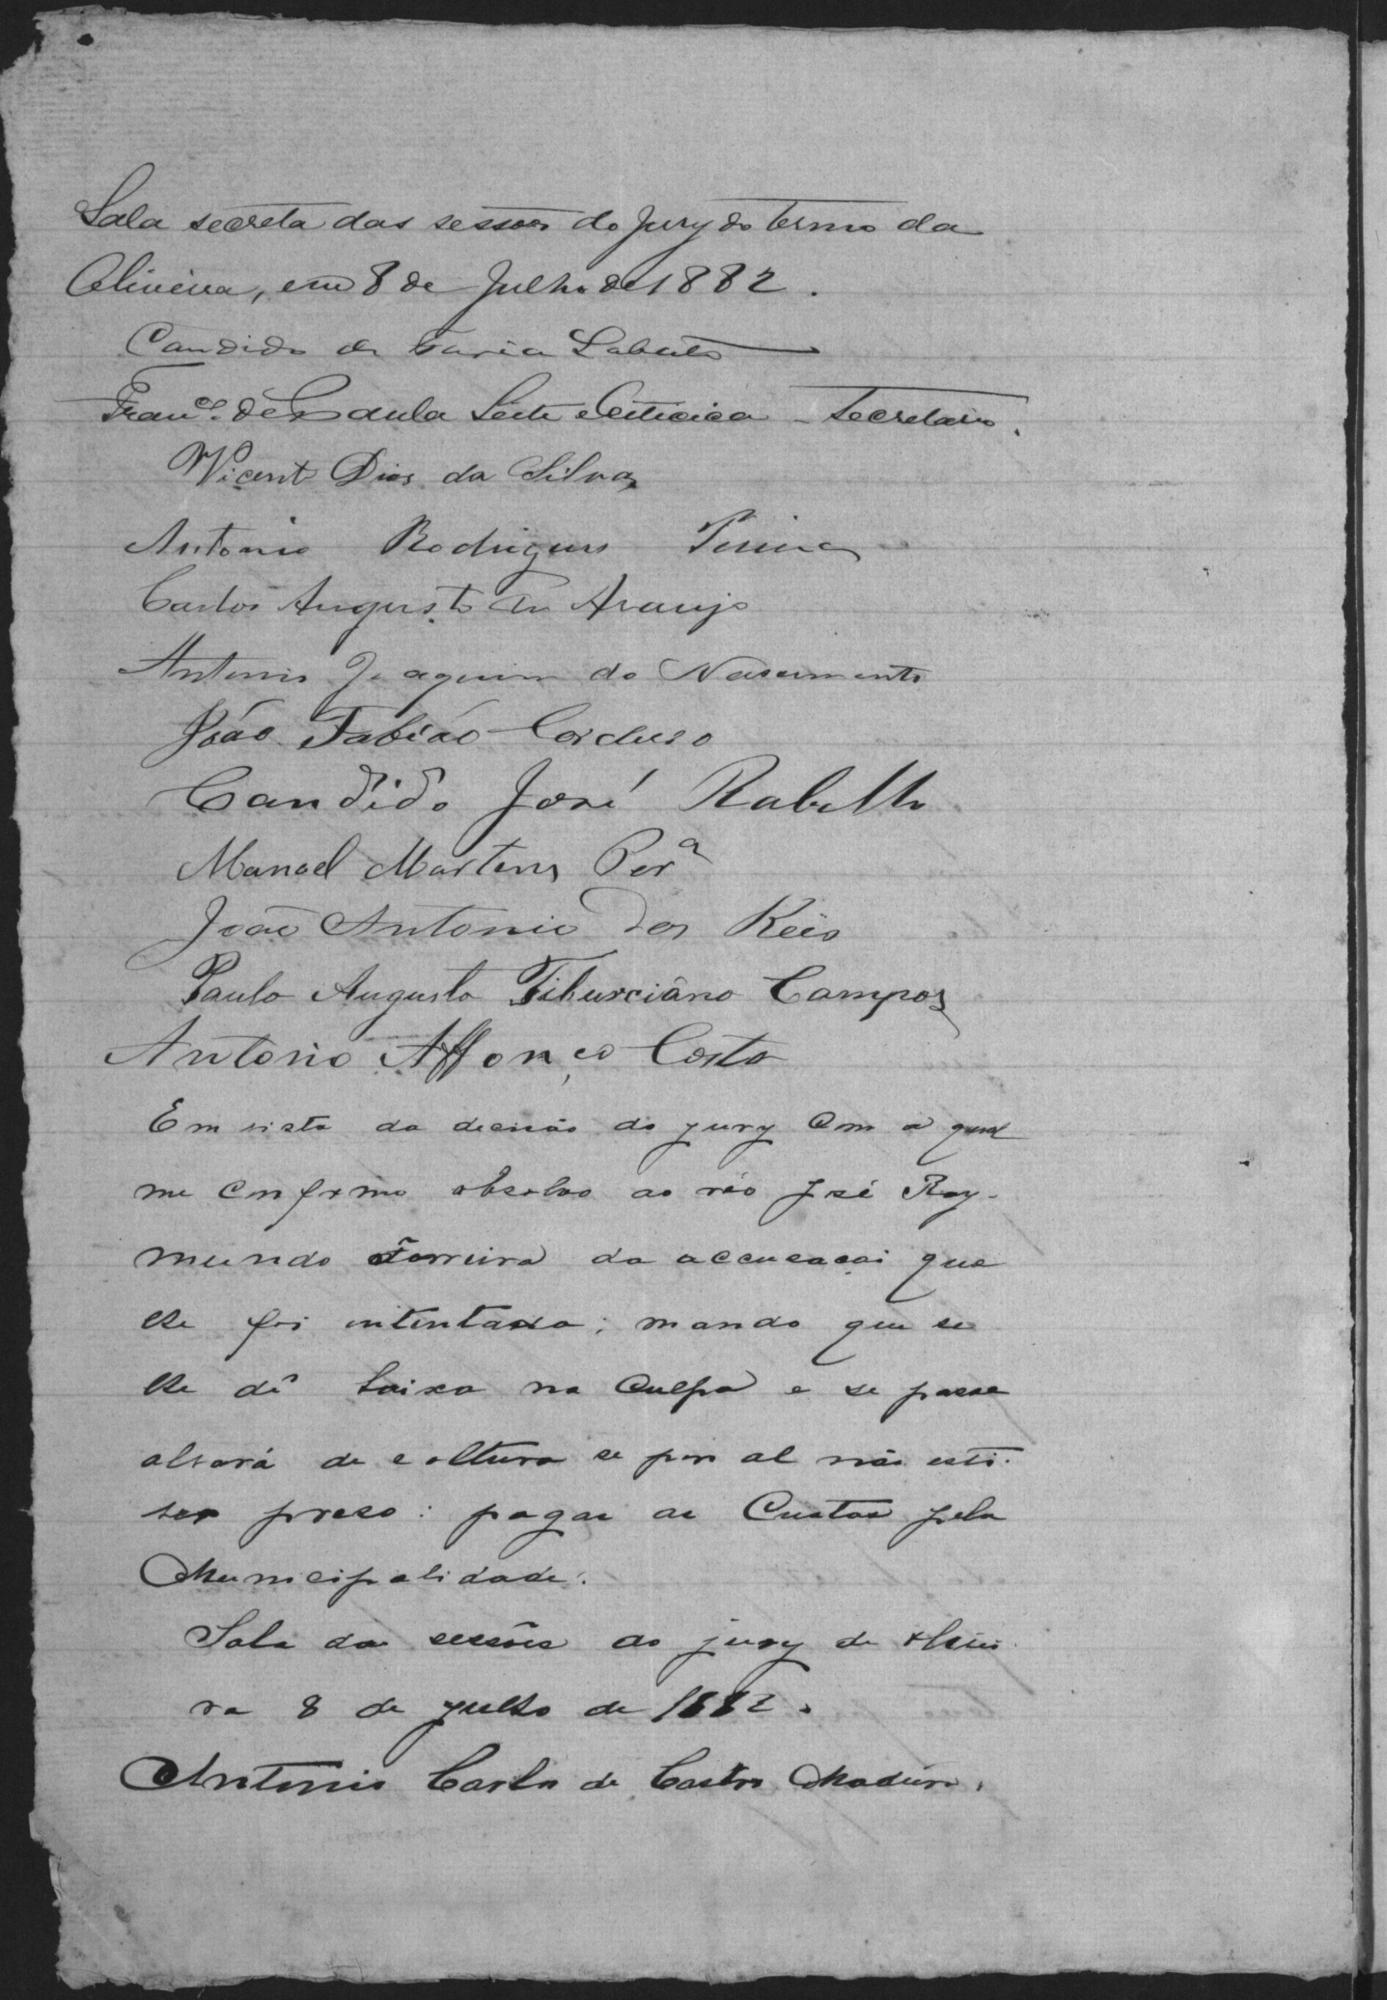 Sala secreta das sessoes do Jury do termo da
Oliveira, em 8 de Julho de 1882.
Candido de Faria Lobato
Franco. de Paula Leite e Oiticica - Secretario.
Vicente Dias da Silva
Antonio Rodrigues
Carlos Augusto de Araujo
Antonio Joaquim do Nascimento
João Fabião Carduso
Candido José Rabello
Manoel Martins Pera
João Antonio dos Reis
Paulo Augusto Tiburciâno Campos
Antonio Affonço Costa
Em vista da decisão do jury com a qual
me conformo absolvo ao réo José Ray-
mundo Ferreira da accusação que
lhe foi intentada; mando que se
lhe dê baixa na culpa e se passe
alvará de soltura se por al não esti-
ver preso: pagas as custas pela
Municipalidade.
Sala das sessões do jury de Olivei
ra 8 de julho de 1882.
Antonio Carlos de Castro Madeira.